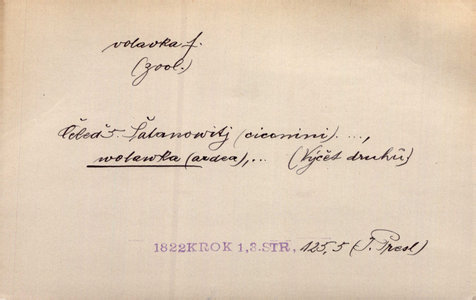 volavka f.
(zool.)
Čeleď 5. Šátanowitj (ciconini). ...,
wolawka (ardea),... (Výčet druhů)
1822KROK 1,3.STR, 125,5 (J. Presl)